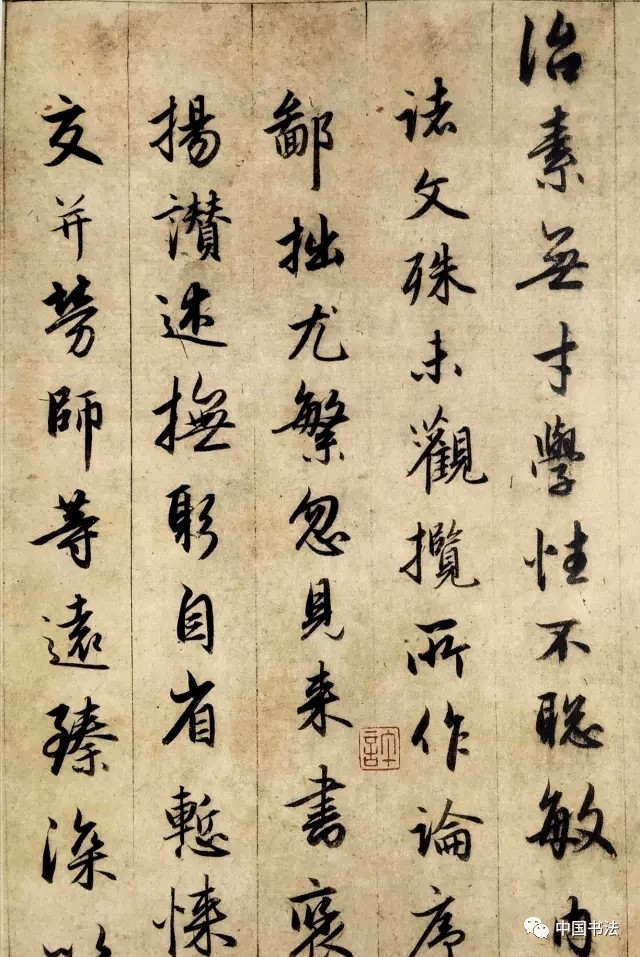 治素無才學性不聡敏内
諸文殊未觀攬所作論序
鄙拙尤繁忽見来書褒
揚讃述撫躬自省慙悚
交并勞師等遠臻深以
許
中国书法